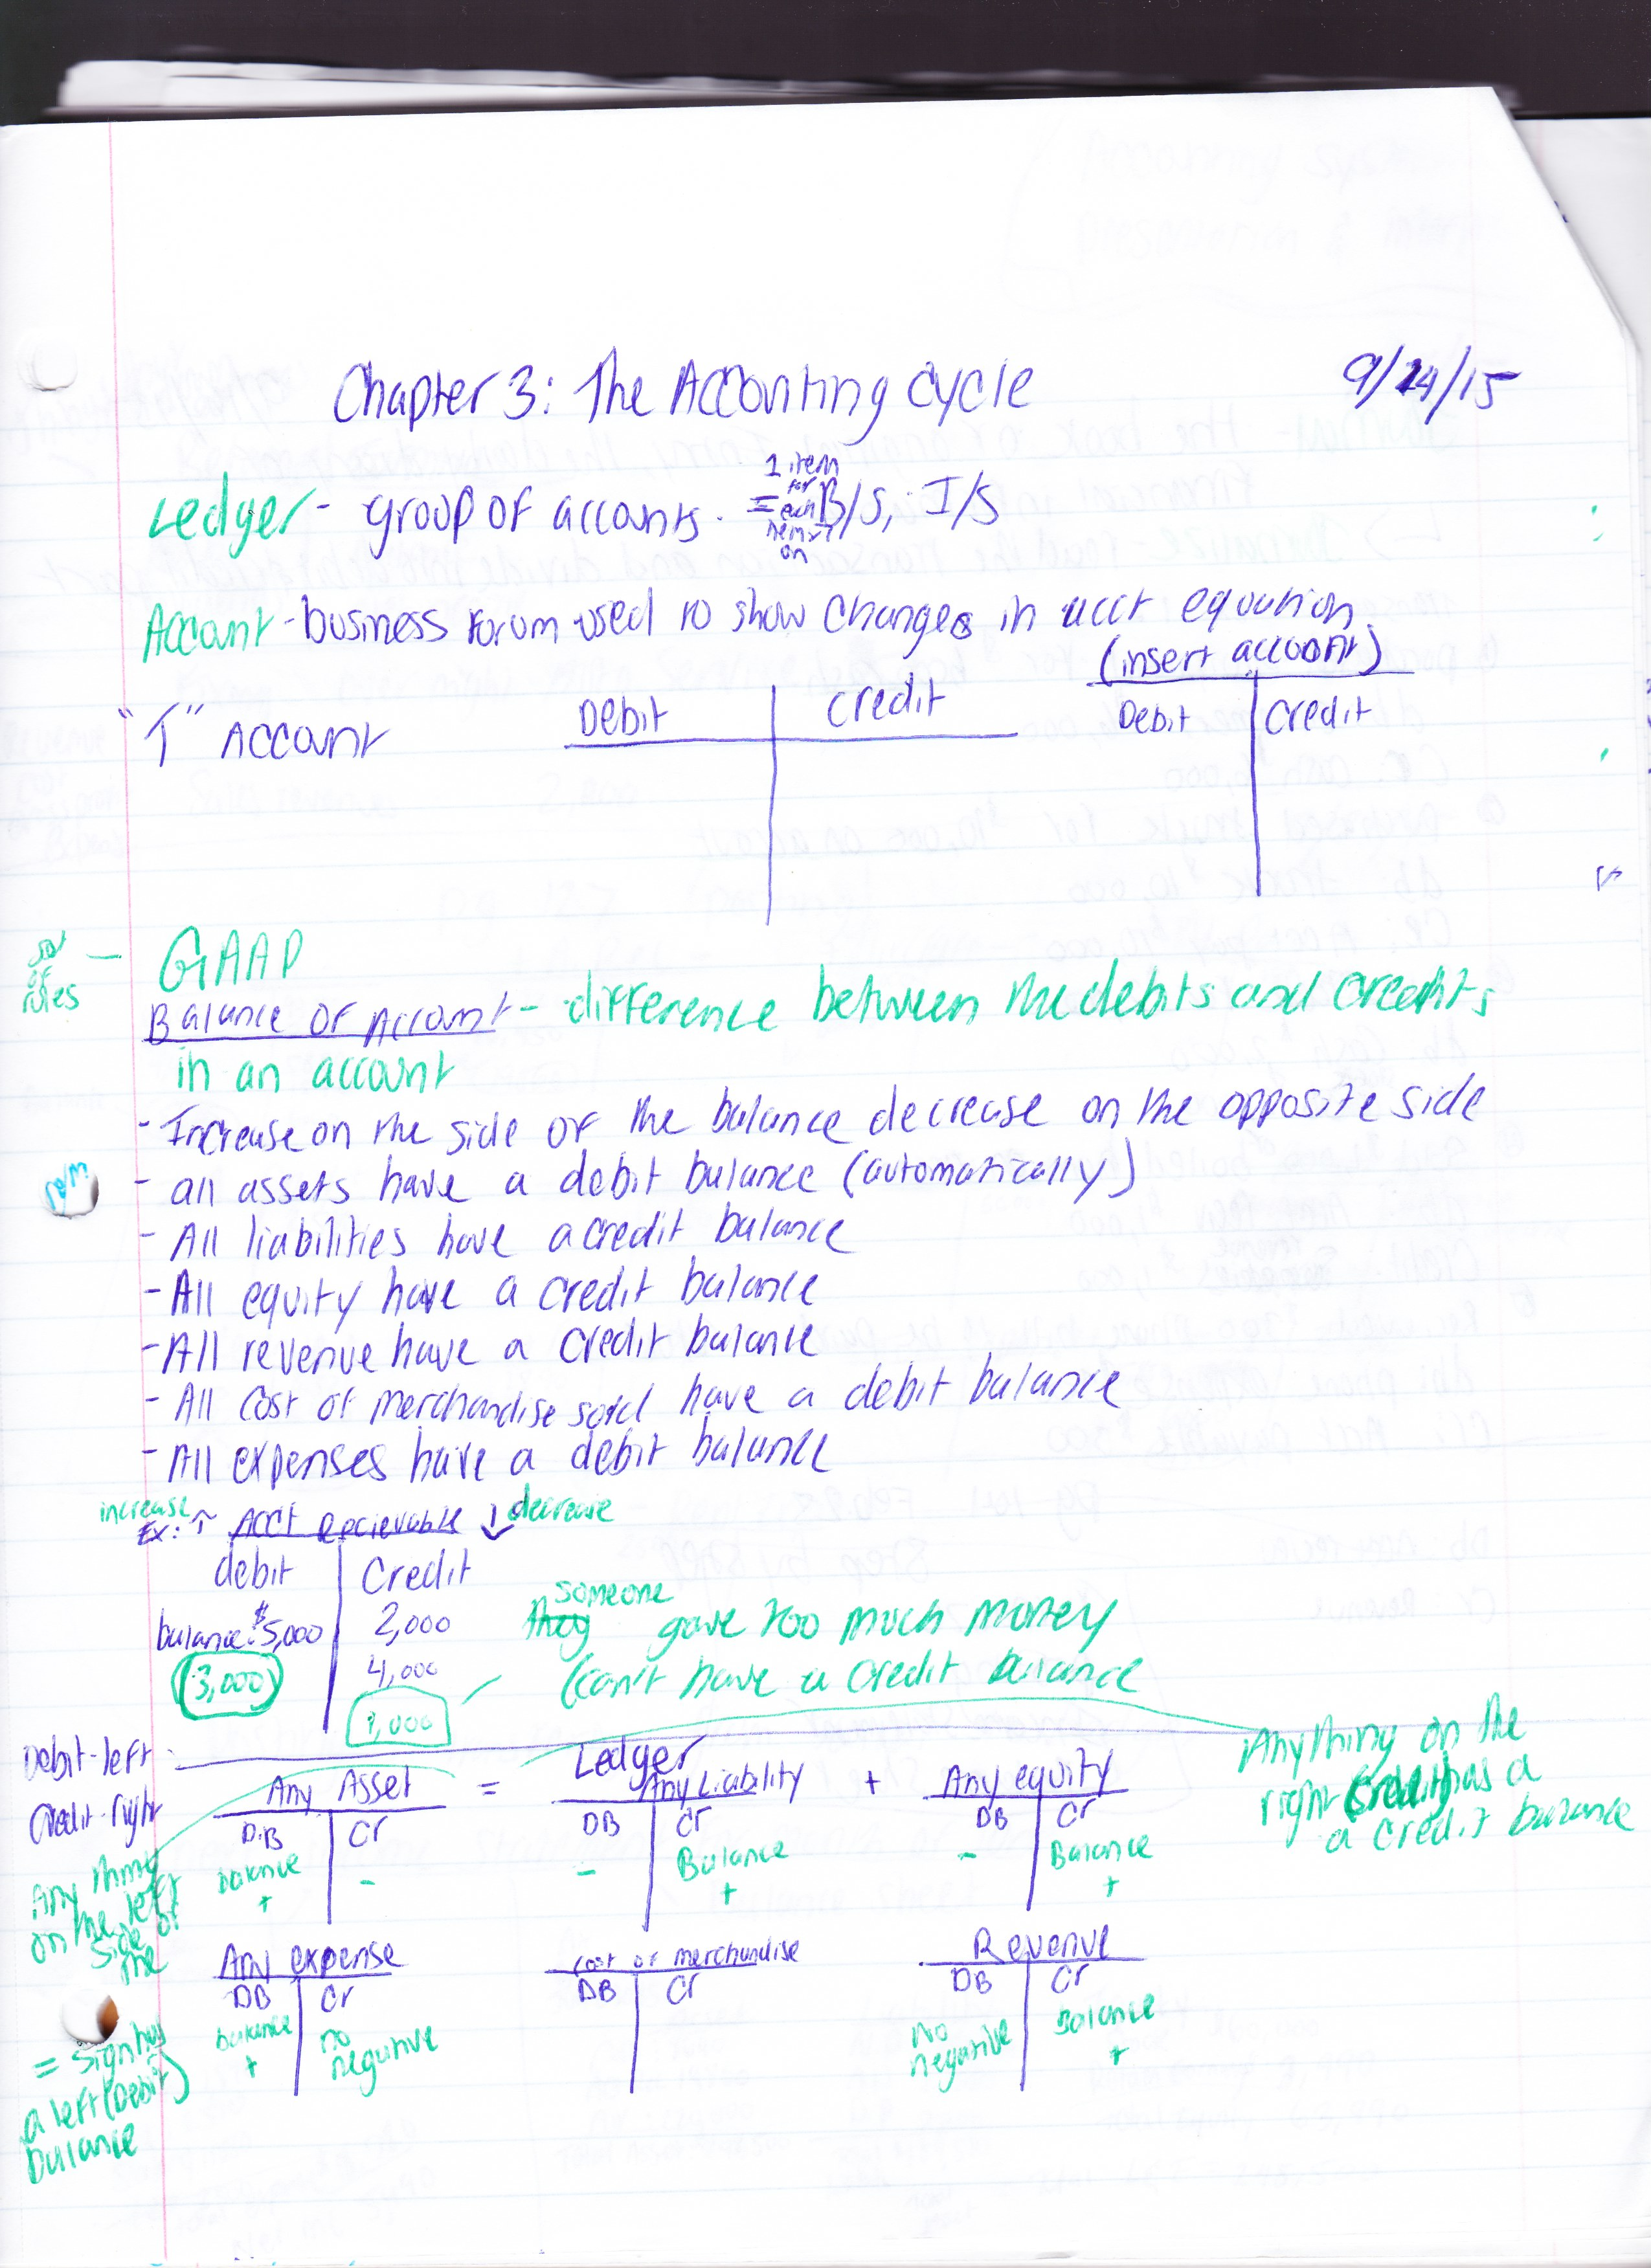 Chapter 3: The Accounting Cycle
9/24/15
Ledger - group of accounts. = 1 item for each item on B/S, I/S
Account - business forum used to show changes in acct equation
(insert account)
"T" Account
Debit | Credit
Debit | Credit
set of rules —
GAAP
Balance of Account - difference between the debits and credits
in an account
- Increase on the side of the balance decrease on the opposite side
- all assets have a debit balance (automatically)
- All liabilities have a credit balance
- All equity have a credit balance
- All revenue have a credit balance
- All cost of merchandise sold have a debit balance
- All expenses have a debit balance
increase
decrease
Ex: ↑ Acct Recievable ↓
debit | Credit
balance: $5,000 | 2,000
(3,000) | 4,000
1,000
They someone gave too much money
(can't have a credit balance
Debit-left
Credit-right
Ledger
Any Asset = Any Liability + Any equity
DB | Cr
DB | Cr
DB | Cr
balance + | -
- | Balance +
- | Balance +
Anything on the
right (credit) has a
a credit balance
Any thing
on the left
side of
the
= sign has
a left (Debit)
balance
Any expense
cost of merchandise
Revenue
DB | Cr
DB | Cr
DB | Cr
balance + | no negative
no negative | Balance +